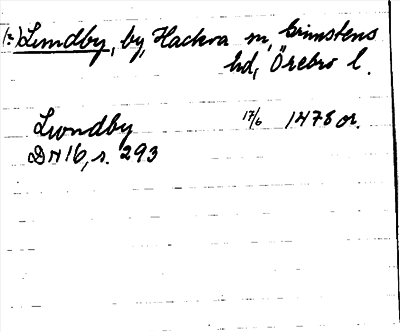 (?) Lundby, by, Hackva sn, Grimstens
hd, Örebro l.
Lwndby 17/6 1478 or.
DN 16, s. 293